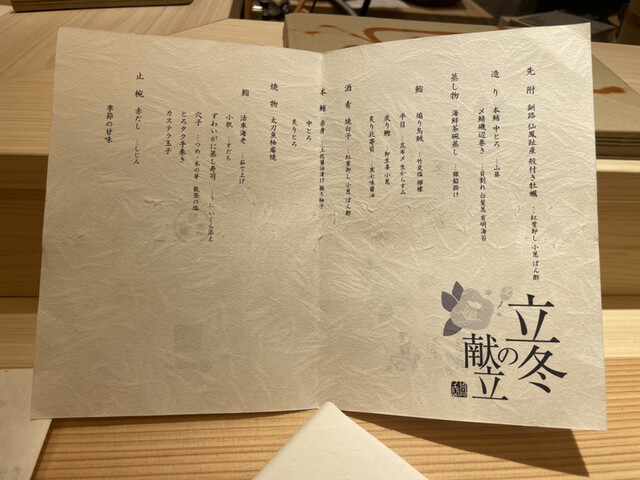 先附 釧路 仙鳳趾産 殻付き牡蠣 …紅葉卸し 小葱 ぽん酢
造り 本鮪 中とろ …山藤
〆鯖磯辺巻き …貝割れ 白髪葱 有明海苔
蒸し物 海鮮茶碗蒸し …銀餡掛け
鮨 煽り烏賊 …竹炭塩 檸檬
平目 …昆布〆 生からすみ
炙り鰹 …卸生姜 小葱
炙り北寄貝 …黒七味醤油
酒肴 焼白子 …紅葉卸し 小葱 ぽん酢
本鮪 赤身 …土佐醤油漬け 振り柚子
中とろ
炙りとろ
焼物 太刀魚柚庵焼
鮨 活車海老 …茹で上げ
小肌 …すだち
ずわいがに蒸し寿司 …うに いくら添え
穴子 …つめ・木の芽 能登の塩
とろタク手巻き
カステラ玉子
止椀 赤だし …しじみ
季節の甘味
立冬
の
献立